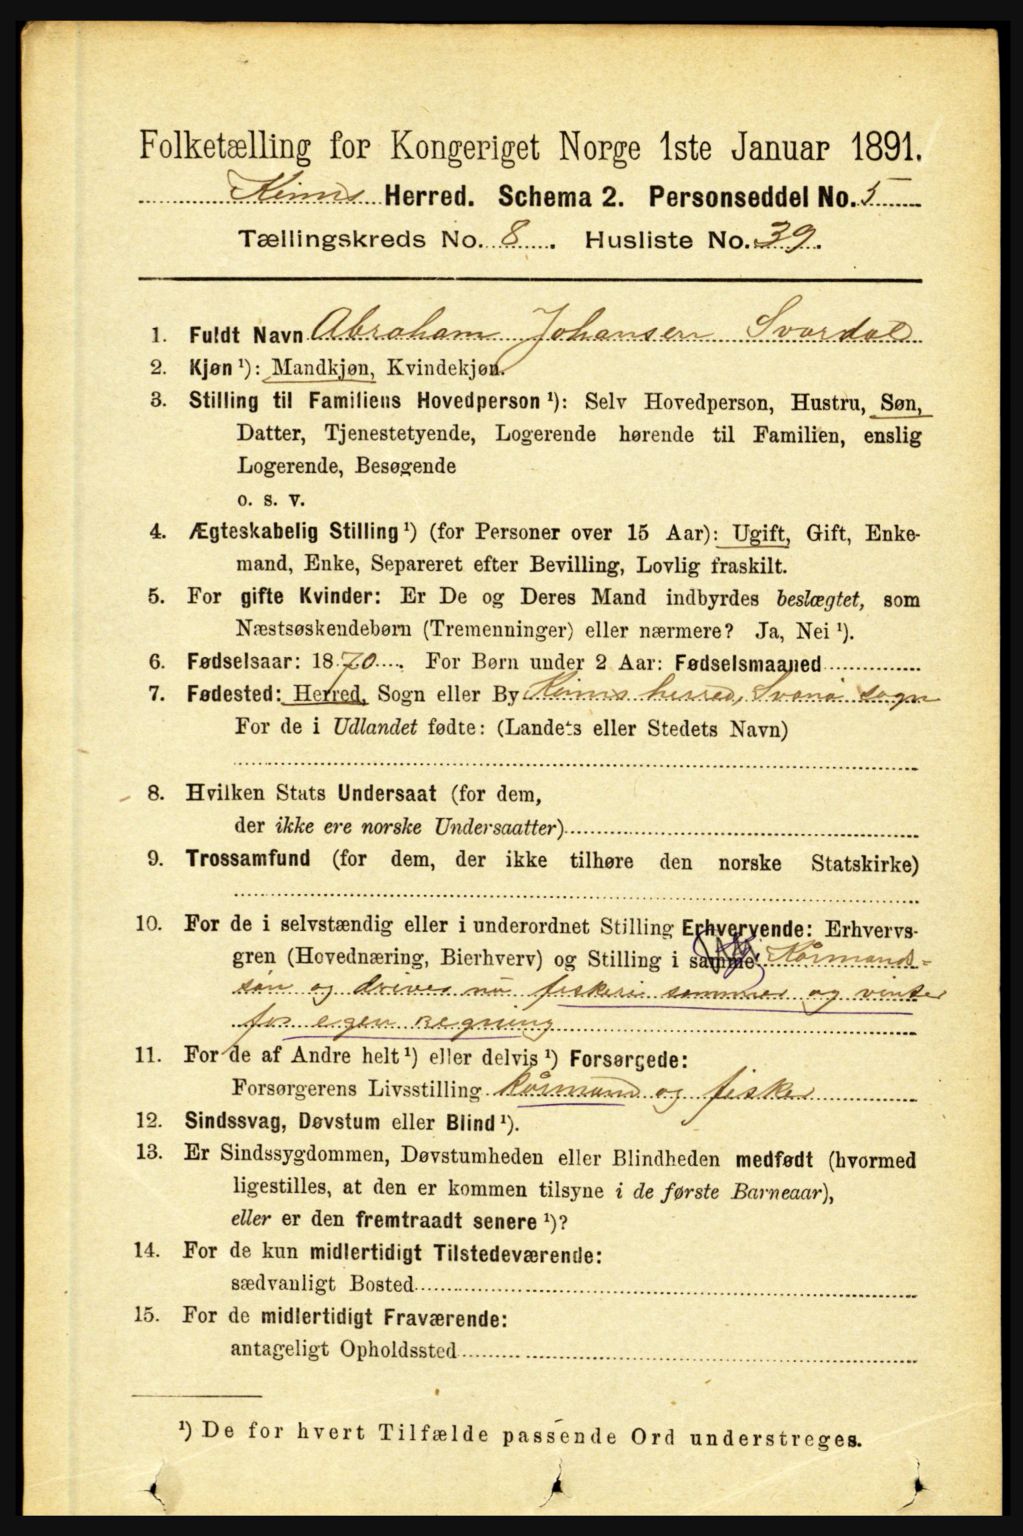 Folketælling for Kongeriget Norge 1ste Januar 1891.
Kinns Herred. Schema 2. Personseddel No. 5
Tællingskreds No. 8. Husliste No. 39.
1. Fuldt Navn Abraham Johansen Svardal
2. Kjøn ¹): Mandkjøn, Kvindekjøn.
3. Stilling til Familiens Hovedperson ¹): Selv Hovedperson, Hustru, Søn,
Datter, Tjenestetyende, Logerende hørende til Familien, enslig
Logerende, Besøgende
o. s. v.
4. Ægteskabelig Stilling ¹) (for Personer over 15 Aar): Ugift, Gift, Enke-
mand, Enke, Separeret efter Bevilling, Lovlig fraskilt.
5. For gifte Kvinder: Er De og Deres Mand indbyrdes beslægtet, som
Næstsøskendebørn (Tremenninger) eller nærmere? Ja, Nei ¹).
6. Fødselsaar: 1870. For Børn under 2 Aar: Fødselsmaaned
7. Fødested: Herred, Sogn eller By Kinns herred, Svanø sogn
For de i Udlandet fødte: (Landets eller Stedets Navn)
8. Hvilken Stats Undersaat (for dem,
der ikke ere norske Undersaatter)
9. Trossamfund (for dem, der ikke tilhøre den norske Statskirke)
10. For de i selvstændig eller i underordnet Stilling Erhvervende: Erhvervs-
gren (Hovednæring, Bierhverv) og Stilling i samme: Kårmands-
søn og driver nu fiskeri sommer og vinter
for egen regning
11. For de af Andre helt ¹) eller delvis ¹) Forsørgede:
Forsørgerens Livsstilling Kårmand og fisker
12. Sindssvag, Døvstum eller Blind ¹).
13. Er Sindssygdommen, Døvstumheden eller Blindheden medfødt (hvormed
ligestilles, at den er kommen tilsyne i de første Barneaar),
eller er den fremtraadt senere ¹)?
14. For de kun midlertidigt Tilstedeværende:
sædvanligt Bosted
15. For de midlertidigt Fraværende:
antageligt Opholdssted
¹) De for hvert Tilfælde passende Ord understreges.